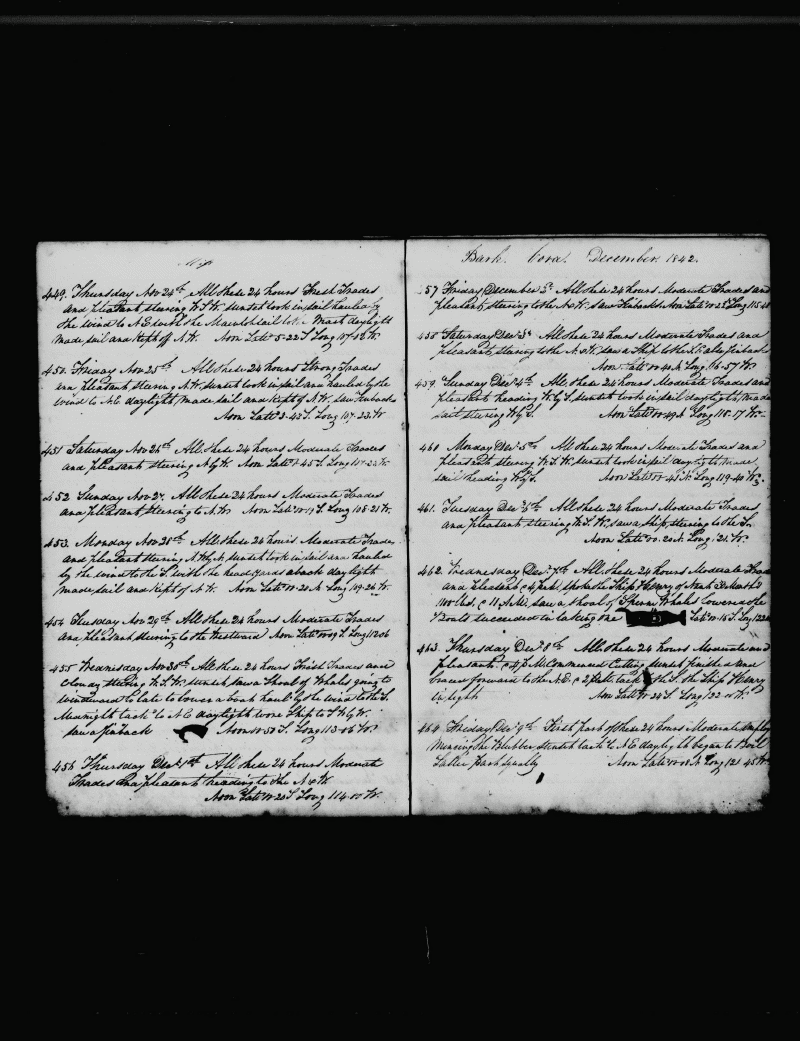 449. Thursday Nov 24th All these 24 hours Fresh Trades
and pleasant steering W.S.W. sunset took in sail hauled by
the wind to N.E. with the Maintopsail to the Mast daylight
made sail and kept off N.W. Noon Latt 5-22 S Long 107-12 W.
450. Friday Nov 25th All these 24 hours Strong Trades
and pleasant steering N.W. sunset took in sail and hauled by the
wind to N.E. daylight made sail and kept off N.W. saw finbacks
Noon Latt 2-42 S. Long 107-23 W
451 Saturday Nov 26th All these 24 hours Moderate Trades
and pleasant steering N by W. Noon Latt 45 S. Long
452 Sunday Nov 27. All these 24 hours Moderate Trades
and pleasant steering to N.W. Noon Latt 00-19 S. Long 108-21 W.
453. Monday Nov 28th All these 24 hours Moderate Trades
and pleasant steering N.W by N. sunset took in sail and hauled
by the wind to the S. with the head yards aback daylight
made sail and kept off N.W. Noon Latt 00-20 N. Long 109-26 W.
454 Tuesday Nov 29th All these 24 hours Moderate Trades
and pleasant steering to the westward Noon Latt 00-09 S. Long 112 06
455 Wednesday Nov 30th All these 24 hours Fresh Trades and
cloudy steering W.S.W. sunset saw a Shoal of Whales going to
windward to late to lower a boat hauld by the wind to the S.
Midnight tack to N.E. daylight wore Ship to S W by W.
saw a finback Noon 00-50 S. Long 113-06 W.
456 Thursday Dec 1st All these 24 hours Moderate
Trades and pleasant heading to the N & W
Noon Latt 00-20 S Long 114-00 W.
Bark. Cora. December 1842.
57 Friday December 2d All these 24 hours Moderate Trades and
pleasant, steering to the N & W. saw Finbacks Noon Latt 00-22 Long 115-48
458 Saturday Dec 3d All these 24 hours Moderate Trades and
pleasants, steering to the N & W, saw a Ship to the S.E. also finbacks
Noon Latt 00-40 N. Long 116-57 W.
459. Sunday Dec 4th All these 24 hours Moderate Trades and
pleasant heading W by S. sunset took in sail daylight, made
sail steering W by S. Noon Latt 00-49 N Long 118-17 W.
460 Monday Dec 5th All these 24 hours Moderate Trades and
pleasant steering W.S.W. sunset took in sail daylight made
sail heading W by S. Noon Latt 00-41 N. Long 119-40 W.
461. Tuesday Dec 6th All these 24 hours Moderate Trades
and pleasant steering W.S.W, saw a Ship, steering to the S.
Noon Latt 00-20 N Long. 121 W.
462. Wednesday Dec. 7th All these 24 hours Moderate Trades
and pleasant (4 P.M.) Spoke the Ship Henry of Nant
1100 bbls. (11 A.M.) saw a shoal of Sperm Whales lowered the
Boats succeeded in taking one Latt 00-15 S. Long 122
463. Thursday Dec. 8th All these 24 hours Moderate and
pleasant (4 P.M. Commenced Cutting sunset finish and
braced forward to the N.E. (2 P.M. tack to the S. the Ship Henry
in sight Noon Latt 00-24 S Long 122 00 W.
464 Friday Dec 9th First part of these 24 hours Moderate employed
Mincing the Blubber sunset tack to N.E. daylight began to Boil
Latter part Squally Noon Latt 00-08 N Long 121 45 W